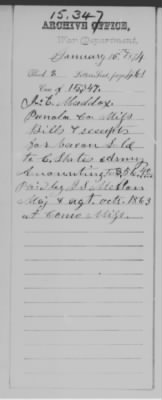 15.347
ARCHIVE OFFICE,
War Department,
January 15th 74
Book 2 Letters Recd, page 461
Case of 15,347.
J. C. Maddox
Panola Co Miss
Bills & receipts
for bacon sold
to C. States army
Amounting to $
Paid by
Maj & agt. octr. 1863
at Como Miss.